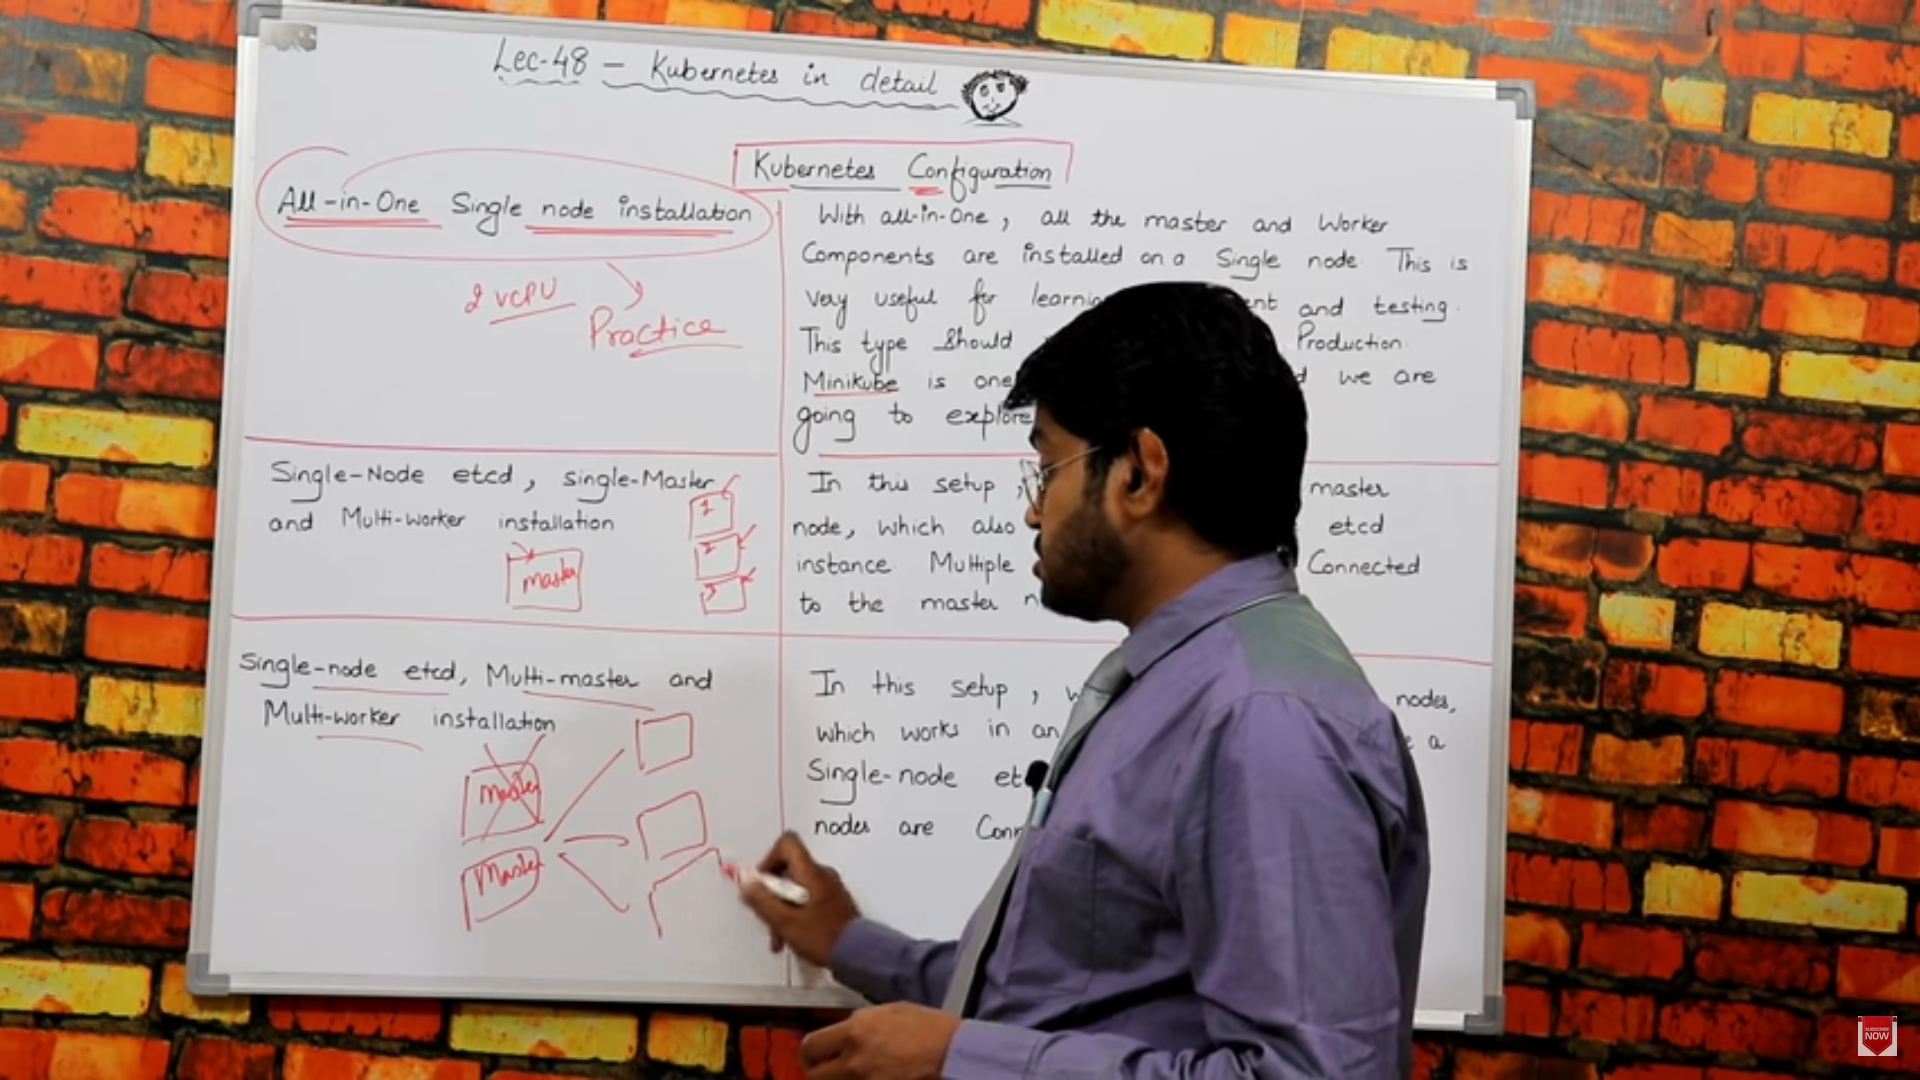 Lec-48 - Kubernetes in detail
Kubernetes Configuration
All-in-One Single node installation
2 vCPU
Practice
With all-in-One, all the master and Worker
Components are installed on a Single node. This is
very useful for and testing.
This type Should Production.
Minikube is one we are
going to explore
Single-Node etcd, single-Master
and Multi-worker installation
master
1
2
3
In this setup, master
node, which also etcd
instance. Multiple Connected
to the master
Single-node etcd, Multi-master and
Multi-worker installation
Master
Master
In this setup, nodes,
which works in an a
Single-node
nodes are
SUBSCRIBE
NOW